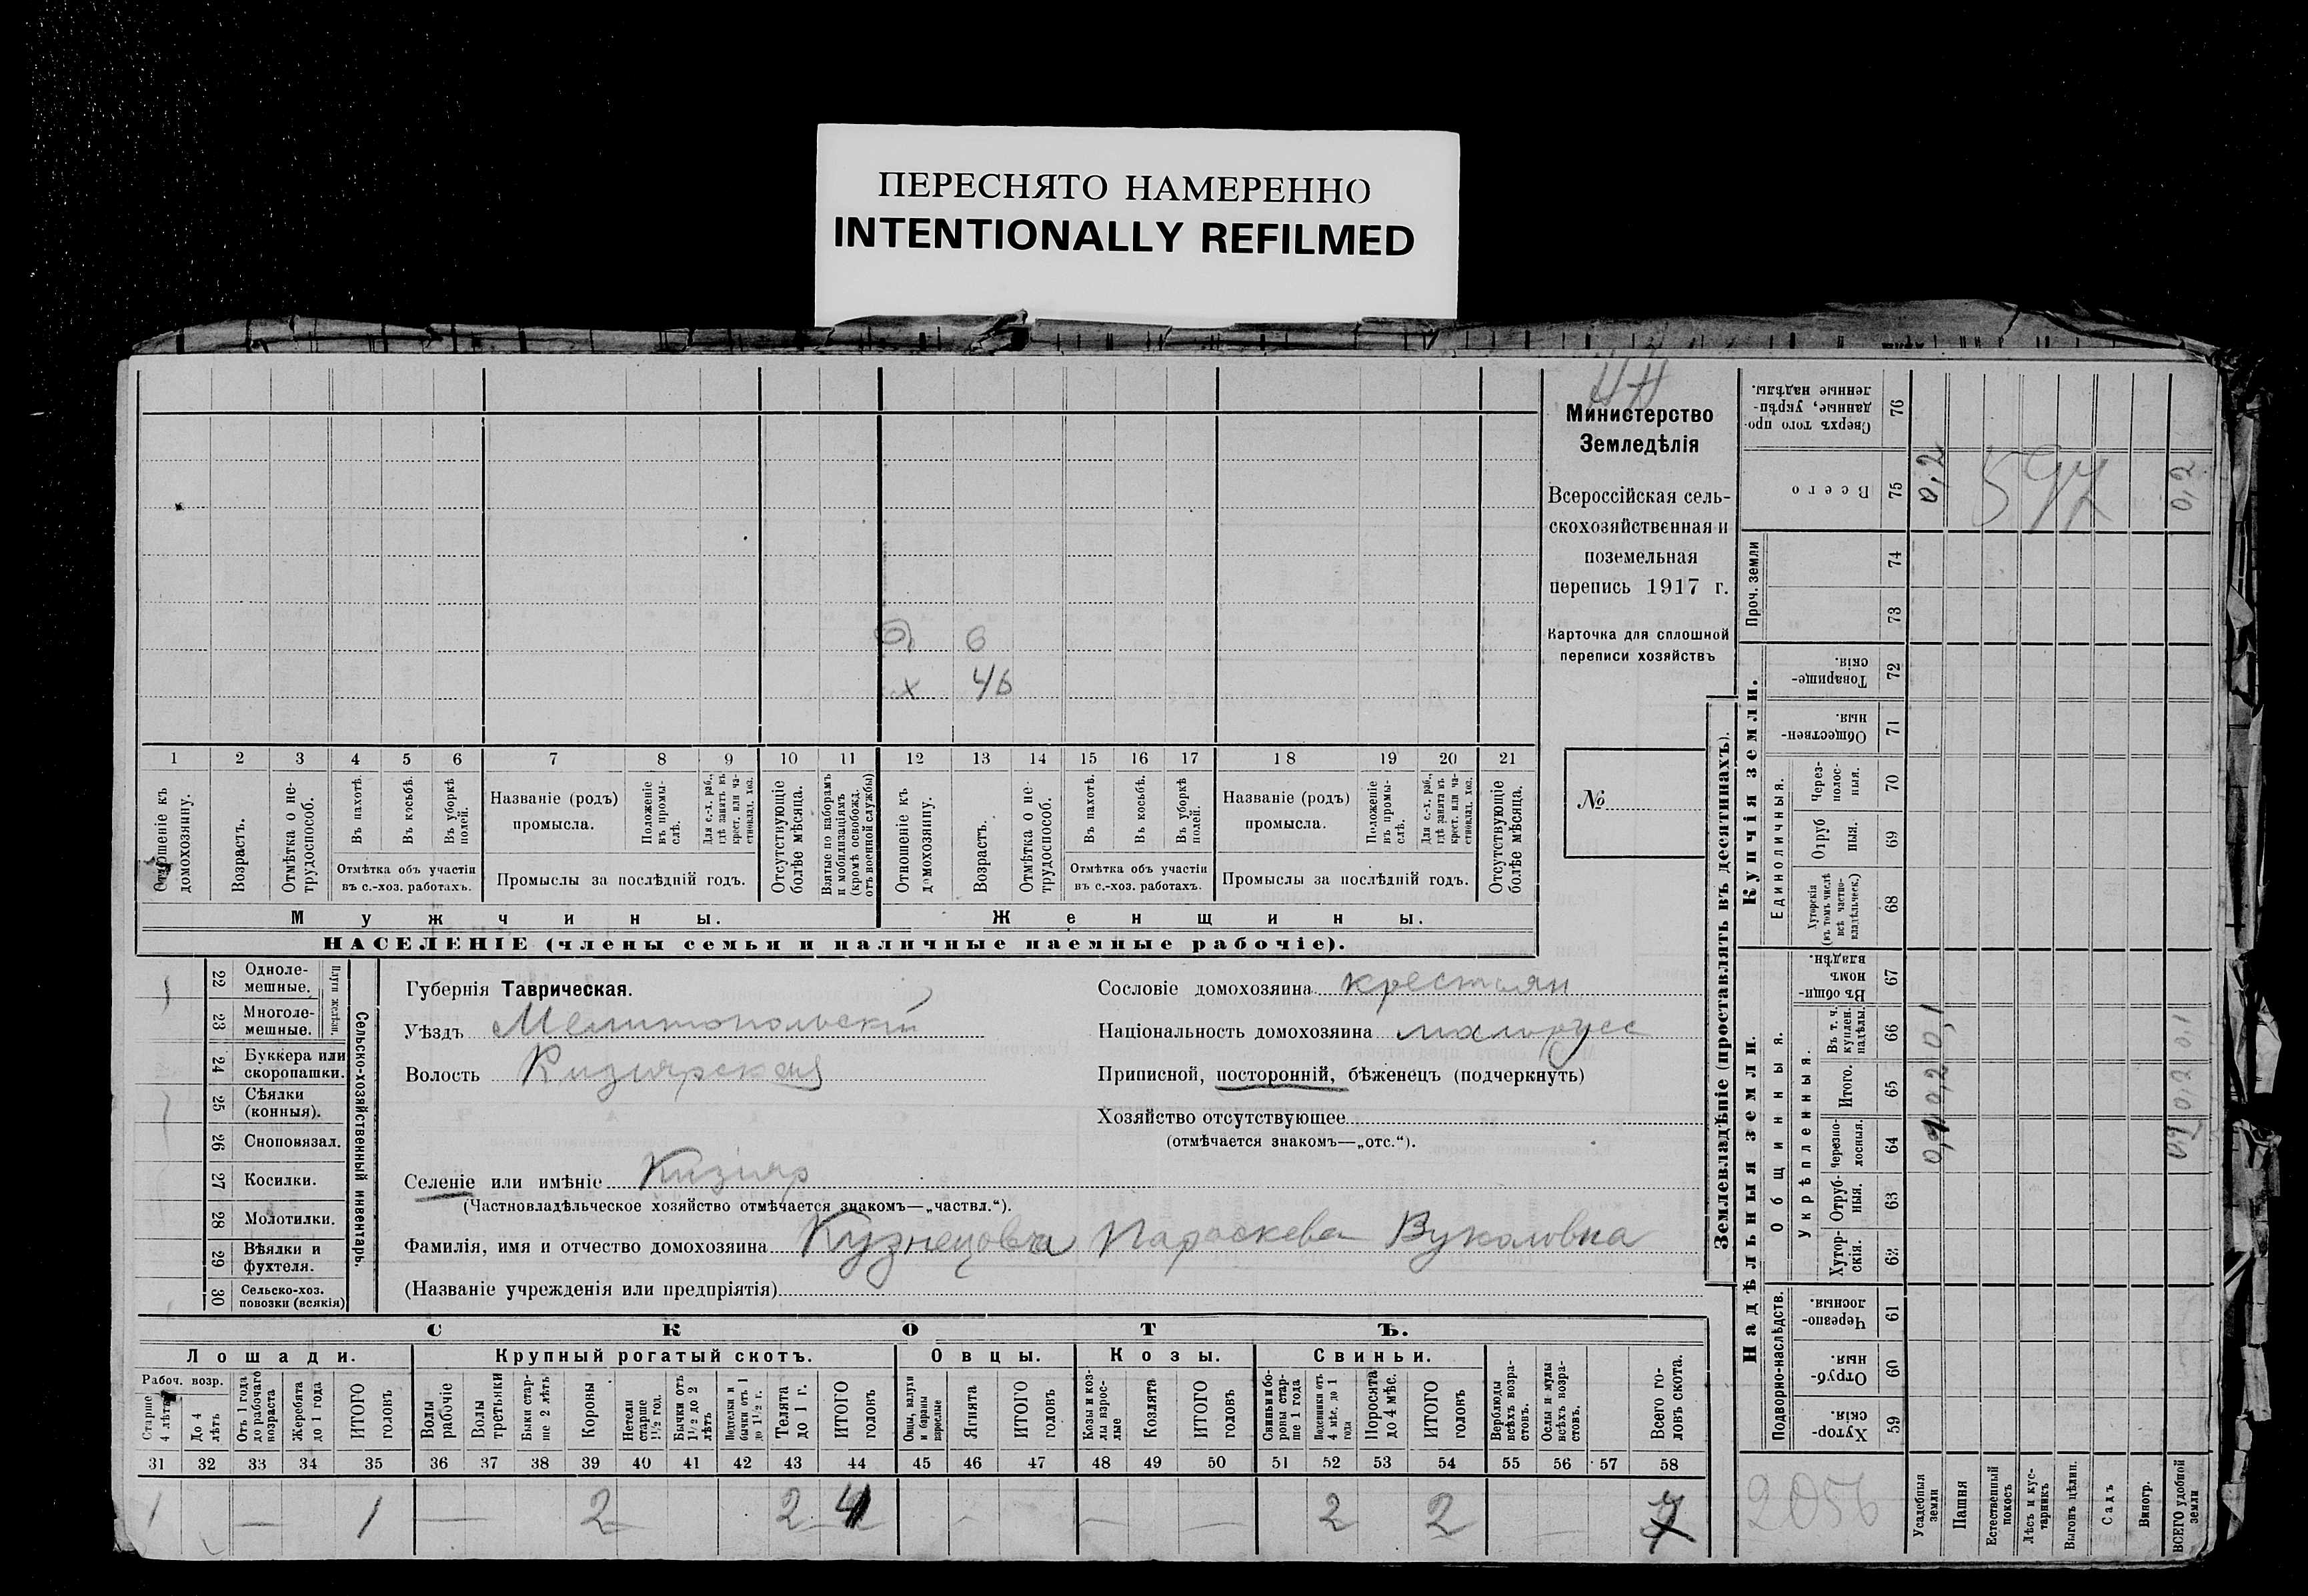 ПЕРЕСНЯТО НАМЕРЕННО
INTENTIONALLY REFILMED
Министерство
Земледѣлія
Всероссійская сель-
скохозяйственная и
поземельная
перепись 1917 г.
Карточка для сплошной
переписи хозяйствъ
№
6
х 46
1 2 3 4 5 6 7 8 9 10 11 12 13 14 15 16 17 18 19 20 21
Отношеніе къ домохозяину.
Возрастъ.
Отмѣтка о не-трудоспособ.
Въ пахотѣ.
Въ косьбѣ.
Въ уборкѣ полей.
Отмѣтка объ участіи
въ с.-хоз. работахъ.
Названіе (родъ)
промысла.
Положеніе въ промы-слѣ.
Для с.-х. раб., гдѣ занятъ въ крест. или ча-стновлад. хоз.
Промыслы за послѣдній годъ.
Отсутствующіе болѣе мѣсяца.
Взятые по наборамъ и мобилизаціямъ (кромѣ освобожд. отъ военной службы)
Отношеніе къ домохозяину.
Возрастъ.
Отмѣтка о не-трудоспособ.
Въ пахотѣ.
Въ косьбѣ.
Въ уборкѣ полей.
Отмѣтка объ участіи
въ с.-хоз. работахъ.
Названіе (родъ)
промысла.
Положеніе въ промы-слѣ.
Для с.-х. раб., гдѣ занята въ крест. или ча-стновлад. хоз.
Промыслы за послѣдній годъ.
Отсутствующіе болѣе мѣсяца.
Мужчины. Женщины.
НАСЕЛЕНІЕ (члены семьи и наличные наемные рабочіе).
Сельско-хозяйственный инвентарь.
Плуги желѣзн.
22 Одноле-мешные.
23 Многоле-мешные.
24 Буккера или скоропашки.
25 Сѣялки (конныя).
26 Сноповязал.
27 Косилки.
28 Молотилки.
29 Вѣялки и фухтеля.
30 Сельско-хоз. повозки (всякія)
Губернія Таврическая.
Уѣздъ Мелитопольскій
Волость Кизіярская
Селеніе или имѣніе Кизіяр
(Частновладѣльческое хозяйство отмѣчается знакомъ—„частвл.“).
Фамилія, имя и отчество домохозяина Кузнецова Параскева Вуколовна
(Названіе учрежденія или предпріятія)
Сословіе домохозяина крестьян
Національность домохозяина малорусс
Приписной, посторонній, бѣженецъ (подчеркнуть)
Хозяйство отсутствующее
(отмѣчается знакомъ—„отс.“).
СКОТЪ.
Лошади. Крупный рогатый скотъ. Овцы. Козы. Свиньи.
Рабоч. возр.
Старше 4 лѣтъ
До 4 лѣтъ
Отъ 1 года до рабочаго возраста
Жеребята до 1 года
ИТОГО головъ
Волы рабочіе
Волы третьяки
Быки стар-ше 2 лѣтъ
Коровы
Нетели старше 1½ год.
Бычки отъ 1½ до 2 лѣтъ
Подтелки и бычки отъ 1 до 1½ г.
Телята до 1 г.
ИТОГО головъ
Овцы, валухи и бараны взрослые
Ягнята
ИТОГО головъ
Козы и коз-лы взрос-лые
Козлята
ИТОГО головъ
Свиньи и бо-ровы стар-ше 1 года
Подсвинки отъ 4 мѣс. до 1 года
Поросята до 4 мѣс.
ИТОГО головъ
Верблюды всѣхъ возра-стовъ.
Ослы и мулы всѣхъ возра-стовъ.
Всего го-ловъ скота.
31 32 33 34 35 36 37 38 39 40 41 42 43 44 45 46 47 48 49 50 51 52 53 54 55 56 57 58
1 — 1 — 2 2 4 — — — — 2 2 — 7
Землевладѣніе (проставлять въ десятинахъ).
Сверхъ того про-данные, укрѣп-ленные надѣлы. 76
Всего 75 0,2 0,2
597
Проч. земли 74 73
Купчія земли.
Товарище-скія. 72
Обществен-ныя. 71
Единоличныя.
Через-полос-ныя. 70
Отруб ныя. 69
Хуторскія (въ томъ числѣ всѣ частно-владѣльческ.) 68
Надѣльныя земли.
Общинныя.
Въ общин-номъ владѣн. 67
Укрѣпленныя.
Въ т. ч. куплен. надѣлы. 66 0,1 0,1
Итого. 65 0,2 0,2
Черезпо-лосныя. 64
Отруб-ныя. 63
Хутор-скія. 62
Подворно-наслѣдств.
Черезпо-лосныя. 61
Отруб-ныя. 60
Хутор-скія. 59
2056
Усадебныя земли
Пашня
Естественный покосъ
Лѣсъ и кус-тарникъ
Выгонъ цѣлин.
Садъ
Виногр.
ВСЕГО удобной земли